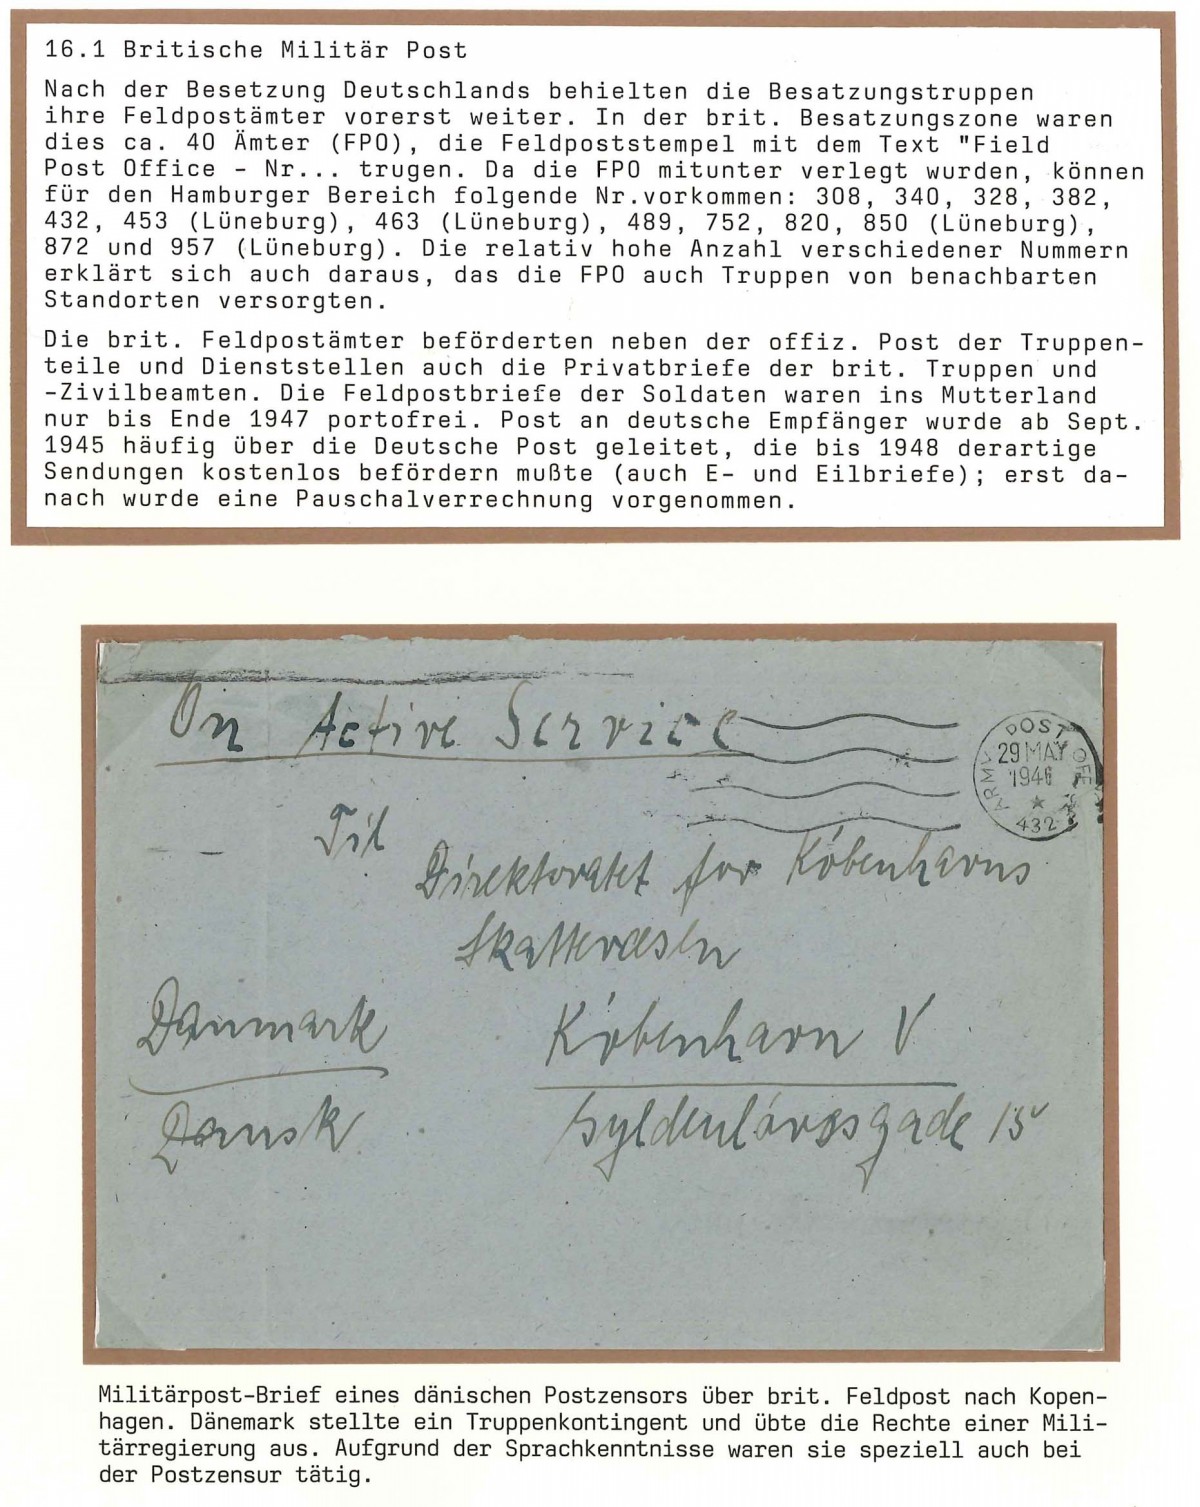 16.1 Britische Militär Post
Nach der Besetzung Deutschlands behielten die Besatzungstruppen
ihre Feldpostämter vorerst weiter. In der brit. Besatzungszone waren
dies ca. 40 Ämter (FPO), die Feldpoststempel mit dem Text "Field
Post Office - Nr... trugen. Da die FPO mitunter verlegt wurden, können
für den Hamburger Bereich folgende Nr.vorkommen: 308, 340, 328, 382,
432, 453 (Lüneburg), 463 (Lüneburg), 489, 752, 820, 850 (Lüneburg),
872 und 957 (Lüneburg). Die relativ hohe Anzahl verschiedener Nummern
erklärt sich auch daraus, das die FPO auch Truppen von benachbarten
Standorten versorgten.
Die brit. Feldpostämter beförderten neben der offiz. Post der Truppen-
teile und Dienststellen auch die Privatbriefe der brit. Truppen und
-Zivilbeamten. Die Feldpostbriefe der Soldaten waren ins Mutterland
nur bis Ende 1947 portofrei. Post an deutsche Empfänger wurde ab Sept.
1945 häufig über die Deutsche Post geleitet, die bis 1948 derartige
Sendungen kostenlos befördern mußte (auch E- und Eilbriefe); erst da-
nach wurde eine Pauschalverrechnung vorgenommen.
On Active Service
ARMY POST OFF
29 MAY
1946
432
Til
Direktoratet for Københavns
Skattevæsen
Danmark
København V
Dansk
Gyldenløvesgade 15
Militärpost-Brief eines dänischen Postzensors über brit. Feldpost nach Kopen-
hagen. Dänemark stellte ein Truppenkontingent und übte die Rechte einer Mili-
tärregierung aus. Aufgrund der Sprachkenntnisse waren sie speziell auch bei
der Postzensur tätig.